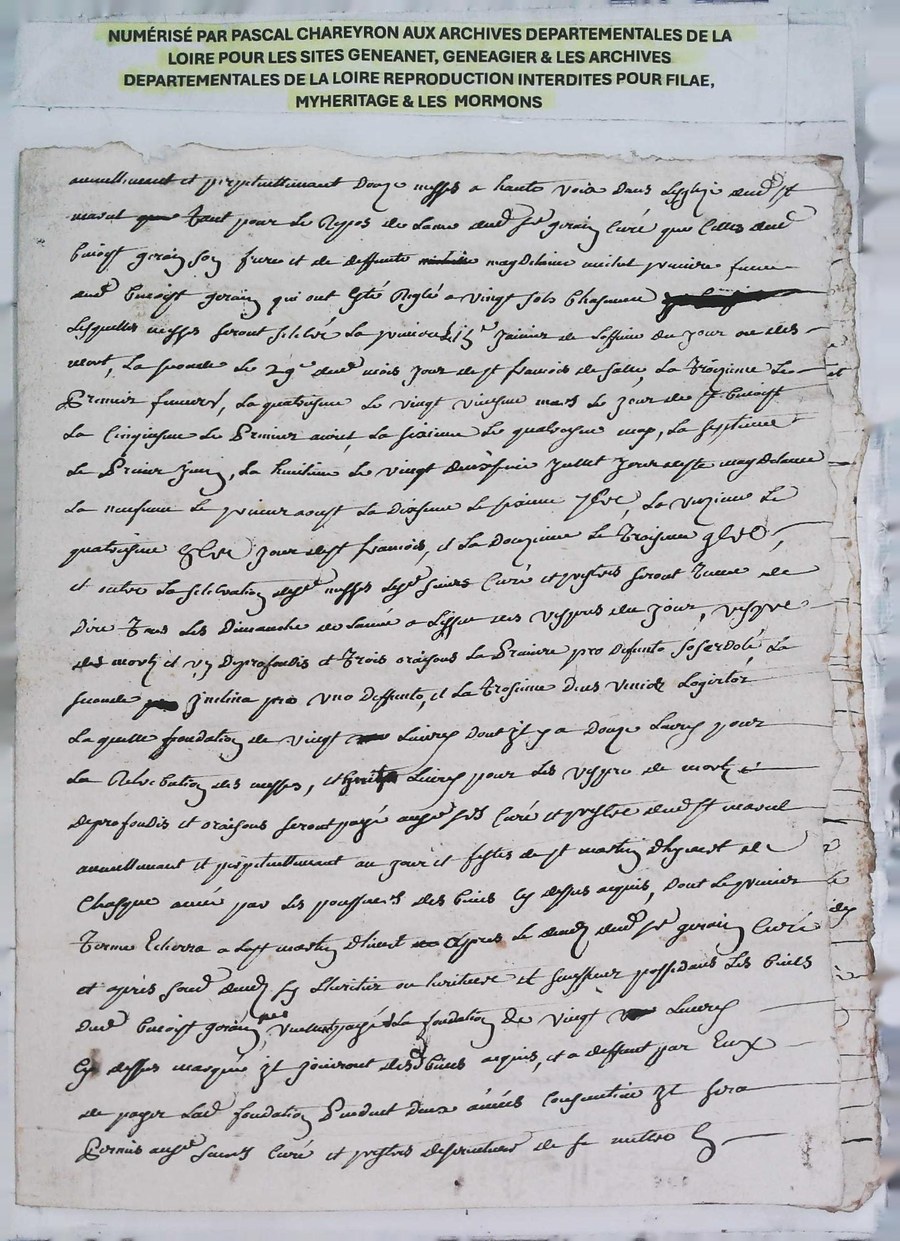 NUMÉRISÉ PAR PASCAL CHAREYRON AUX ARCHIVES DEPARTEMENTALES DE LA
LOIRE POUR LES SITES GENEANET, GENEAGIER & LES ARCHIVES
DEPARTEMENTALES DE LA LOIRE REPRODUCTION INTERDITES POUR FILAE,
MYHERITAGE & LES MORMONS
annuellement et perpetuellement douze messes a haute voix dans lesglize dud St
marcel tant pour le Repos de lame dud Sr gerain Curé que Celles dud
benoist gerain son frere et de deffunte magdelaine michel premiere femme
dud benoist gerain qui ont esté Reglé a vingt sols Chascune
Lesquelles messes seront Celebré La premiere janvier de loffice du jour ou des
mort, La seconde Le 29e dud mois jour de St francois de Salle, La Troizieme Le
Premier fevrier, La quatriesme Le vingt uniesme mars Le jour de St benoist
La Cinqiesme Le Premier avril, La sixieme Le quatorzieme may, La septieme
Le Premier juin, La huitieme Le vingt deuxiesme juillet jour de Ste magdelaine
La neufieme Le premier aoust La dixieme Le sixieme 7bre, La unzieme Le
quatriesme 8bre jour de St francois, et La Douzieme Le Troisieme 9bre,
et outre La Celebration desd messes Lesd sieurs Curé et prestres seront Tenus de
Dire Tous Les Dimanche de Lannée a Lissue des vespres du jour, vespre
des morts et un Deprofondis et Trois oraisons La Premiere pro defunto Sacerdote La
seconde inclina pro uno deffunto, et La Troisieme Deus veniae Largitor
La quelle fondation de vingt Livres dont il y a Douze Livres pour
La Celebration des messes, et huit Livres pour Les vespre de morts
deprofondis et oraisons seront payé auxd Srs Curé et prestre dud St marcel
annuellement et perpetuellement au jour et festes de St martin dhyvert de
Chasque année par Les possesseurs des biens Cy dessus acquis, Dont Le premier
Terme Echerra a La St martin dhivert apres Le deces dud Sr gerain Curé
et apres sond deces sy Lheritier ou heritiere et successeur possedans Les biens
dud benoist gerain, payé La fondation De vingt Livres
Cy dessus marqué il jouiront desd biens acquis, et a deffaut par Eux
de payer Lad fondation Pendant Deux années Consecutive il sera
Permis auxd sieurs Curé et prestres de se mettre